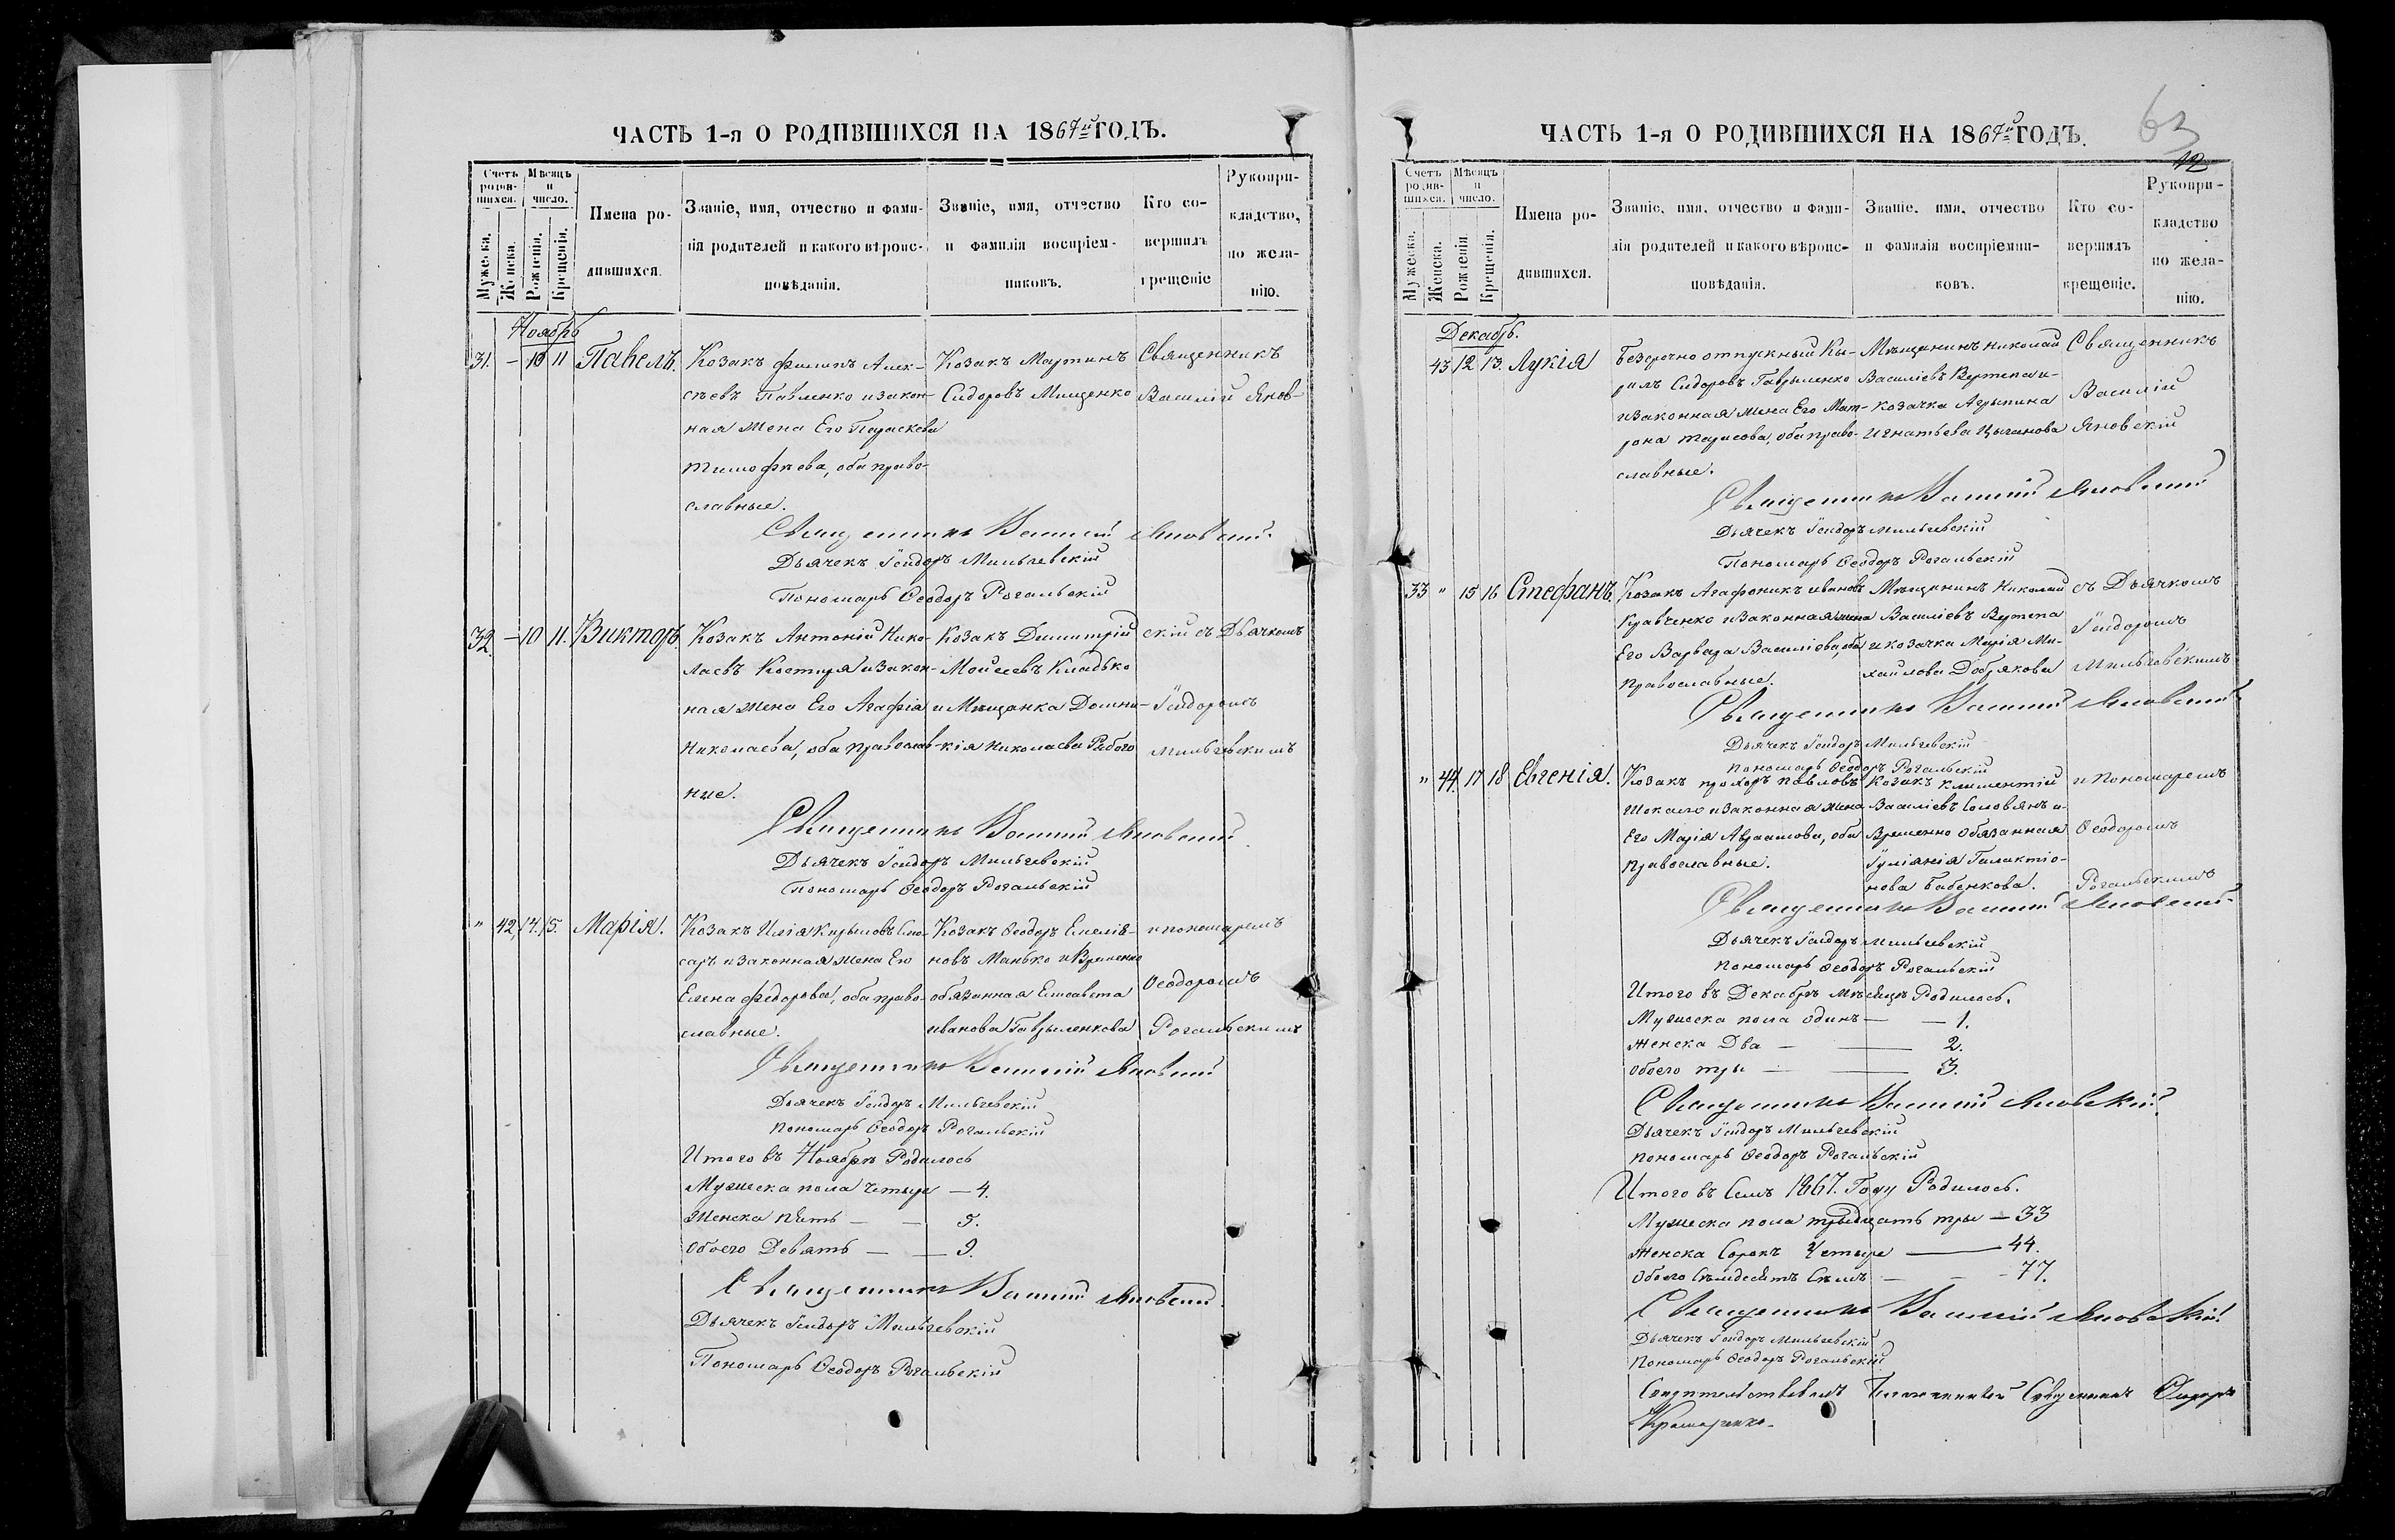 ЧАСТЬ 1-я О РОДИВШИХСЯ НА 1867й ГОДЪ.
Счетъ родив-шихся.
Мужеска.
Женска.
Мѣсяцъ и число.
Рожденія.
Крещенія.
Имена ро-
дившихся.
Званіе, имя, отчество и фами-
лія родителей и какого вѣроис-
повѣданія.
Званіе, имя, отчество
и фамилія воспріем-
никовъ.
Кто со-
вершилъ
крещеніе
Рукопри-
кладство,
по жела-
нію.
Ноябрь
31. – 10 11 Павелъ.
Козакъ Филипъ Алек-
сѣевъ Павленко и закон-
ная жена Его Параскева
Тимофѣева, оба право-
славные.
Козакъ Мартинъ
Сидоровъ Мищенко
Священникъ
Василій Янов-
Священникъ Василій Яновскій.
Дьячекъ Їсидоръ Мильчевскій
Пономарь Ѳеодоръ Рогальскій
32. – 10 11. Викторъ.
Козакъ Антоній Нико-
лаевъ Костыря и закон-
ная жена Его Агафія
Николаева, оба православ-
ные.
Козакъ Димитрій
Моисеевъ Кладько
и Мѣщанка Домни-
кія Николаева Рабого
скій съ Дьячкомъ
Їсидоромъ
Мильчевскимъ
Священникъ Василій Яновскій
Дьячекъ Їсидоръ Мильчевскій
Пономарь Ѳеодоръ Рогальскій
" 42. 14. 15. Марія.
Козакъ Илія Кириловъ Сле-
саръ и законная жена Его
Елена Федорова, оба право-
славные.
Козакъ Ѳеодоръ Емелія-
новъ Манько и Временно
обязанная Елисавета
Иванова Гаврыленкова
и пономаремъ
Ѳеодоромъ
Рогальскимъ
Священникъ Василій Яновскій
Дьячекъ Їсидоръ Мильчевскій
Пономарь Ѳеодоръ Рогальскій
Итого въ Ноябрѣ Родилось
Мужеска пола четыре – 4.
Женска пять – – 5.
Обоего Девять – – 9.
Священникъ Василій Яновскій
Дьячекъ Їсидоръ Мильчевскій
Пономарь Ѳеодоръ Рогальскій
63
ЧАСТЬ 1-я О РОДИВШИХСЯ НА 1867й ГОДЪ.
12
Счетъ родив-шихся.
Мужеска.
Женска.
Мѣсяцъ и число.
Рожденія.
Крещенія.
Имена ро-
дившихся.
Званіе, имя, отчество и фами-
лія родителей и какого вѣроис-
повѣданія.
Званіе, имя, отчество
и фамилія воспріемни-
ковъ.
Кто со-
вершилъ
крещеніе.
Рукопри-
кладство
по жела-
нію.
Декабрь.
43 12 13. Лукія
Безсрочно отпускный Ки-
рилъ Сидоровъ Гаврыленко
и законная жена Его Мат-
рона Тарасова, оба право-
славные.
Мѣщанинъ Николай
Василіевъ Вертепа и
козачка Агрыпина
Игнатьева Цыганова
Священникъ
Василій
Яновскій
Священникъ Василій Яновскій
Дьячекъ Їсидоръ Мильчевскій
Пономарь Ѳеодоръ Рогальскій
33 " 15 16 Стефанъ.
Козакъ Агафоникъ Ивановъ
Кравченко и законная жена
Его Варвара Василіева, оба
Православные.
Мѣщанинъ Николай
Василіевъ Вертепа
и козачка Марія Ми-
хайлова Добрякова
съ Дьячкомъ
Їсидоромъ
Мильчевскимъ
Священникъ Василій Яновскій
Дьячекъ Їсидоръ Мильчевскій
Пономарь Ѳеодоръ Рогальскій
" 44. 17 18 Евгенія.
Козакъ Прохоръ Павловъ
Шокало и законная жена
Его Марія Авраамова, оба
Православные.
Козакъ Климентій
Василіевъ Соловянъ и
Временно обязанная
Їуліянія Галактіо-
нова Бабенкова.
и Пономаремъ
Ѳеодоромъ
Рогальскимъ
Священникъ Василій Яновскій
Дьячекъ Їсидоръ Мильчевскій
Пономарь Ѳеодоръ Рогальскій
Итого въ Декабрѣ мѣсяцѣ Родилось.
Мужеска пола одинъ – – 1.
Женска Два – – 2.
Обоего тры – – 3.
Священникъ Василій Яновскій
Дьячекъ Їсидоръ Мильчевскій
Пономарь Ѳеодоръ Рогальскій
Итого въ Семъ 1867. Году Родилось.
Мужеска пола трыдцать тры – 33
Женска Сорокъ Четыре – 44.
Обоего Сѣмдесятъ Сѣмъ – – 77.
Священникъ Василій Яновскій
Дьячекъ Їсидоръ Мильчевскій
Пономарь Ѳеодоръ Рогальскій
Свидѣтельствовалъ Благочинный Священникъ Ѳеодоръ
Крамаренко